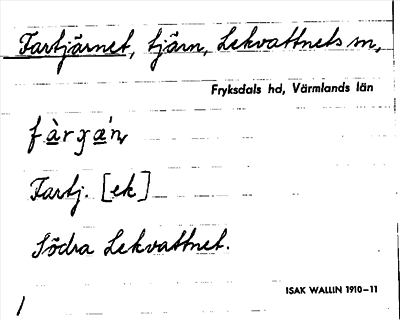 Fartjärnet, tjärn, Lekvattnets sn,
Fryksdals hd, Värmlands län
Fartj. [ek]
Södra Lekvattnet.
ISAK WALLIN 1910-11
1